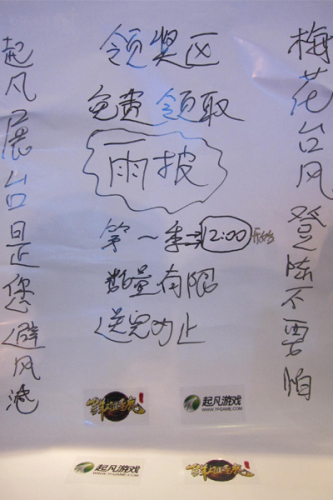 梅花台风登陆不要怕
起凡展台是您避风港
领奖区
免费领取
雨披
第一季⇒12:00开始
数量有限
送完为止
起凡游戏
WWW.7FGAME.COM
起凡游戏
WWW.7FGAME.COM